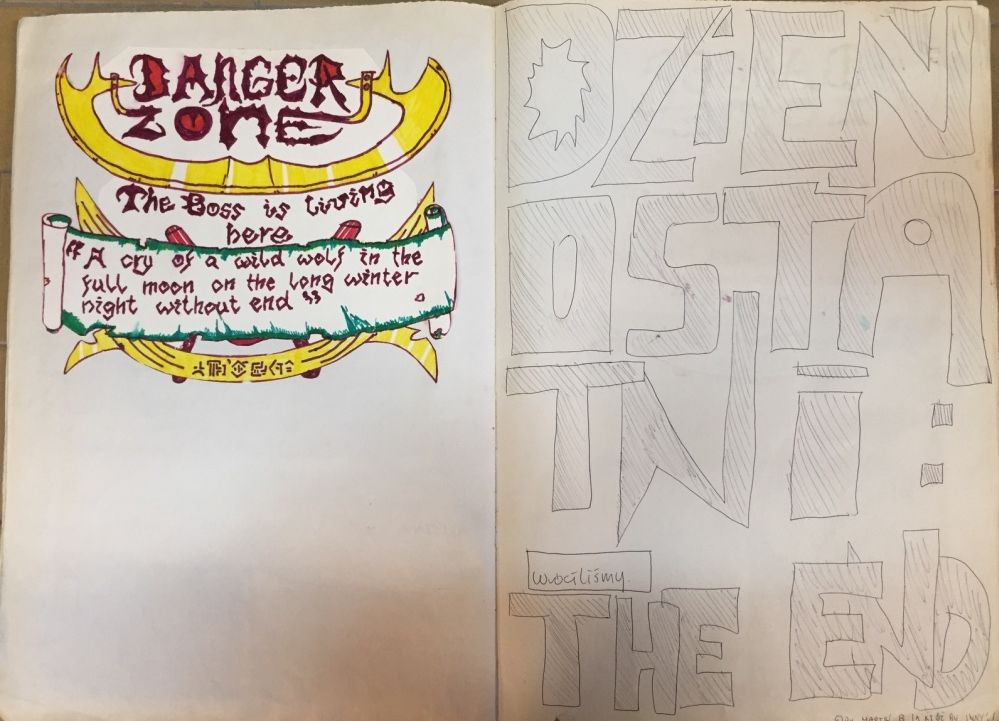 DANGER
ZONE
The Boss is living
here
"A cry of a wild wolf in the
full moon on the long winter
night without end"
DZIEŃ
OSTA
TNI:
wróciliśmy.
THE END